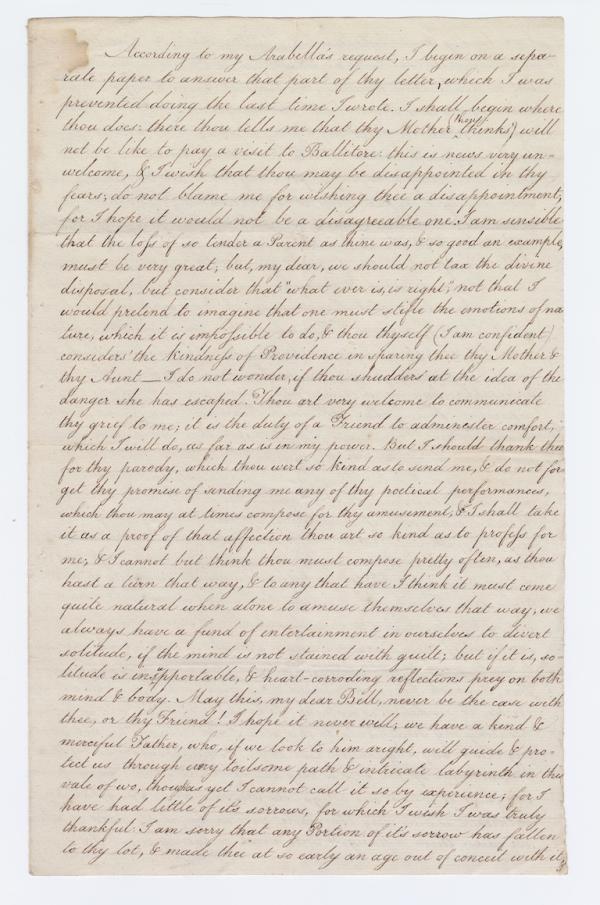 According to my Arabella's request, I begin on a sepa-
rate paper to answer that part of thy letter, which I was
prevented doing the last time I wrote. I shall begin where
thou does: there thou tells me that thy Mother (thinks) will
not be like to pay a visit to Ballitore: this is news very un-
welcome, & I wish that thou may be disappointed in thy
fears; do not blame me for wishing thee a disappointment;
for I hope it would not be a disagreeable one. I am sensible
that the loss of so tender a Parent as thine was, & so good an example,
must be very great; but, my dear, we should not tax the divine
disposal, but consider that "what ever is, is right"; not that I
would pretend to imagine that one must stifle the emotions of na
ture, which it is impossible to do, & thou thyself (I am confident)
considers the kindness of Providence in sparing thee thy Mother &
thy Aunt — I do not wonder, if thou shudders at the idea of the
danger she has escaped. Thou art very welcome to communicate
thy grief to me; it is the duty of a Friend to adminester comfort,
which I will do, as far as is in my power. But I should thank thee
for thy parody, which thou wert so kind as to send me, & do not for-
get thy promise of sending me any of thy poetical performances,
which thou may at times compose for thy amusement, & I shall take
it as a proof of that affection thou art so kind as to profess for
me; & I cannot but think thou must compose pretty often, as thou
hast a turn that way, & to any that have I think it must come
quite natural when alone to amuse themselves that way; we
always have a fund of entertainment in ourselves to divert
solitude, if the mind is not stained with guilt; but if it is, so-
litude is insupportable, & heart-corroding reflections prey on both
mind & body. May this, my dear Bell, never be the case with
thee, or thy Friend! I hope it never will; we have a kind &
merciful Father, who, if we look to him aright, will guide & pro-
tect us through any toilsome path & intricate labyrinth in this
vale of wo, though as yet I cannot call it so by experience; for I
have had little of it's sorrows, for which I wish I was truly
thankful. I am sorry that any Portion of it's sorrow has fallen
to thy lot, & made thee at so early an age out of conceit with it;